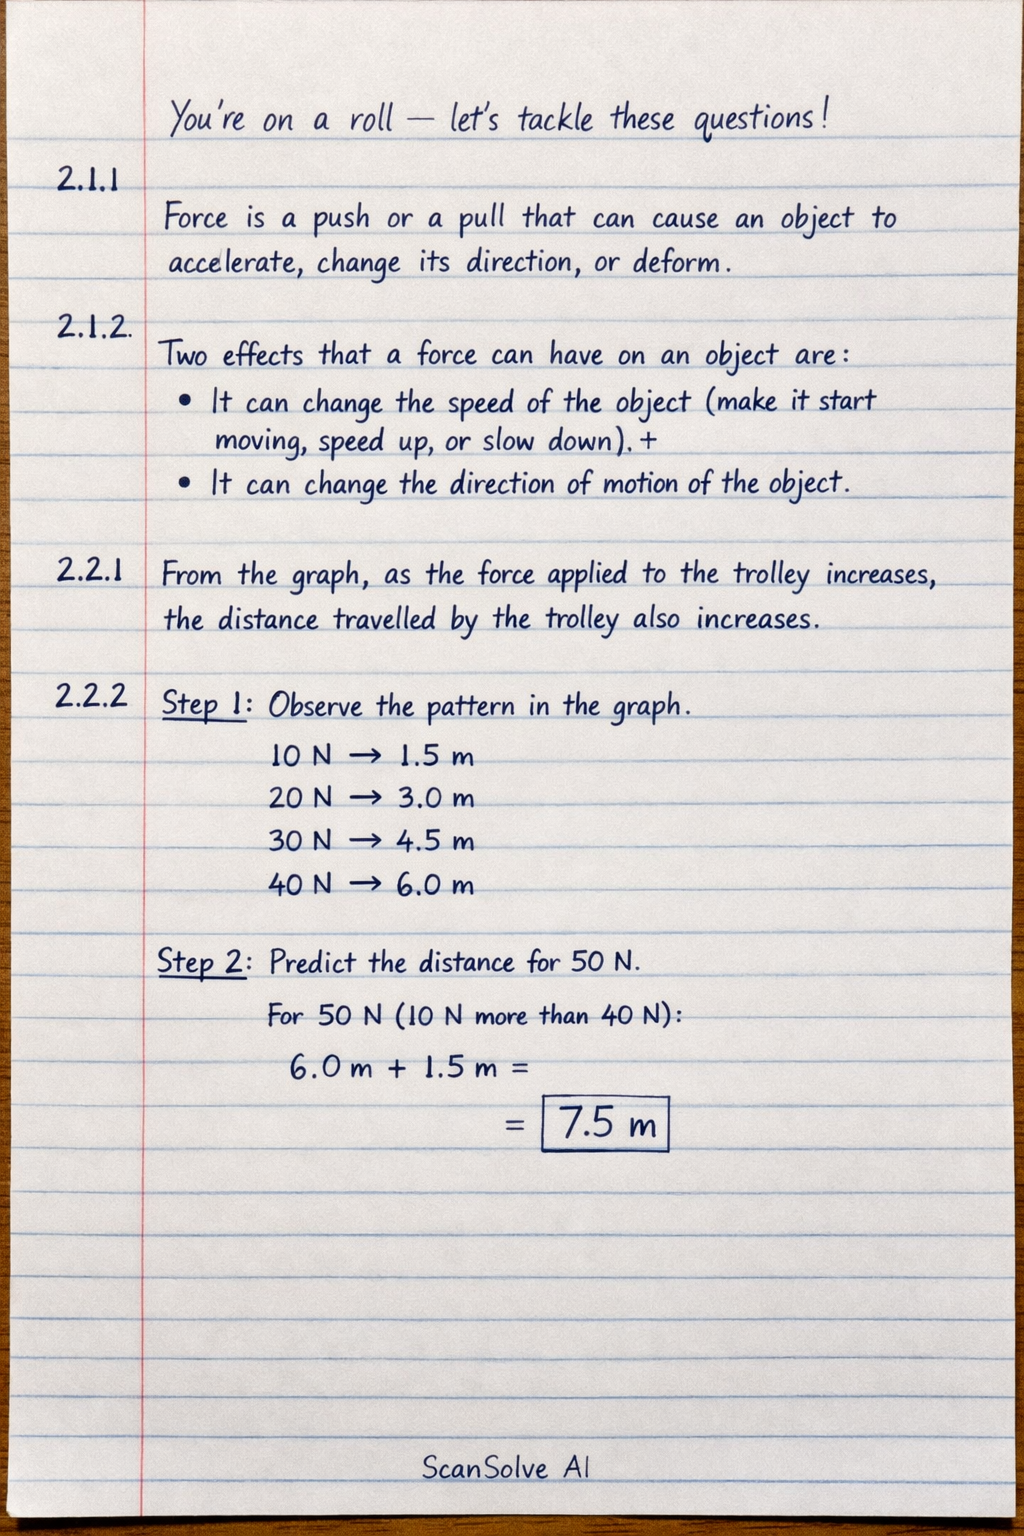 You're on a roll — let's tackle these questions!
2.1.1
Force is a push or a pull that can cause an object to
accelerate, change its direction, or deform.
2.1.2.
Two effects that a force can have on an object are:
• It can change the speed of the object (make it start
moving, speed up, or slow down). +
• It can change the direction of motion of the object.
2.2.1 From the graph, as the force applied to the trolley increases,
the distance travelled by the trolley also increases.
2.2.2 Step 1: Observe the pattern in the graph.
10 N → 1.5 m
20 N → 3.0 m
30 N → 4.5 m
40 N → 6.0 m
Step 2: Predict the distance for 50 N.
For 50 N (10 N more than 40 N):
6.0 m + 1.5 m =
= 7.5 m
ScanSolve AI